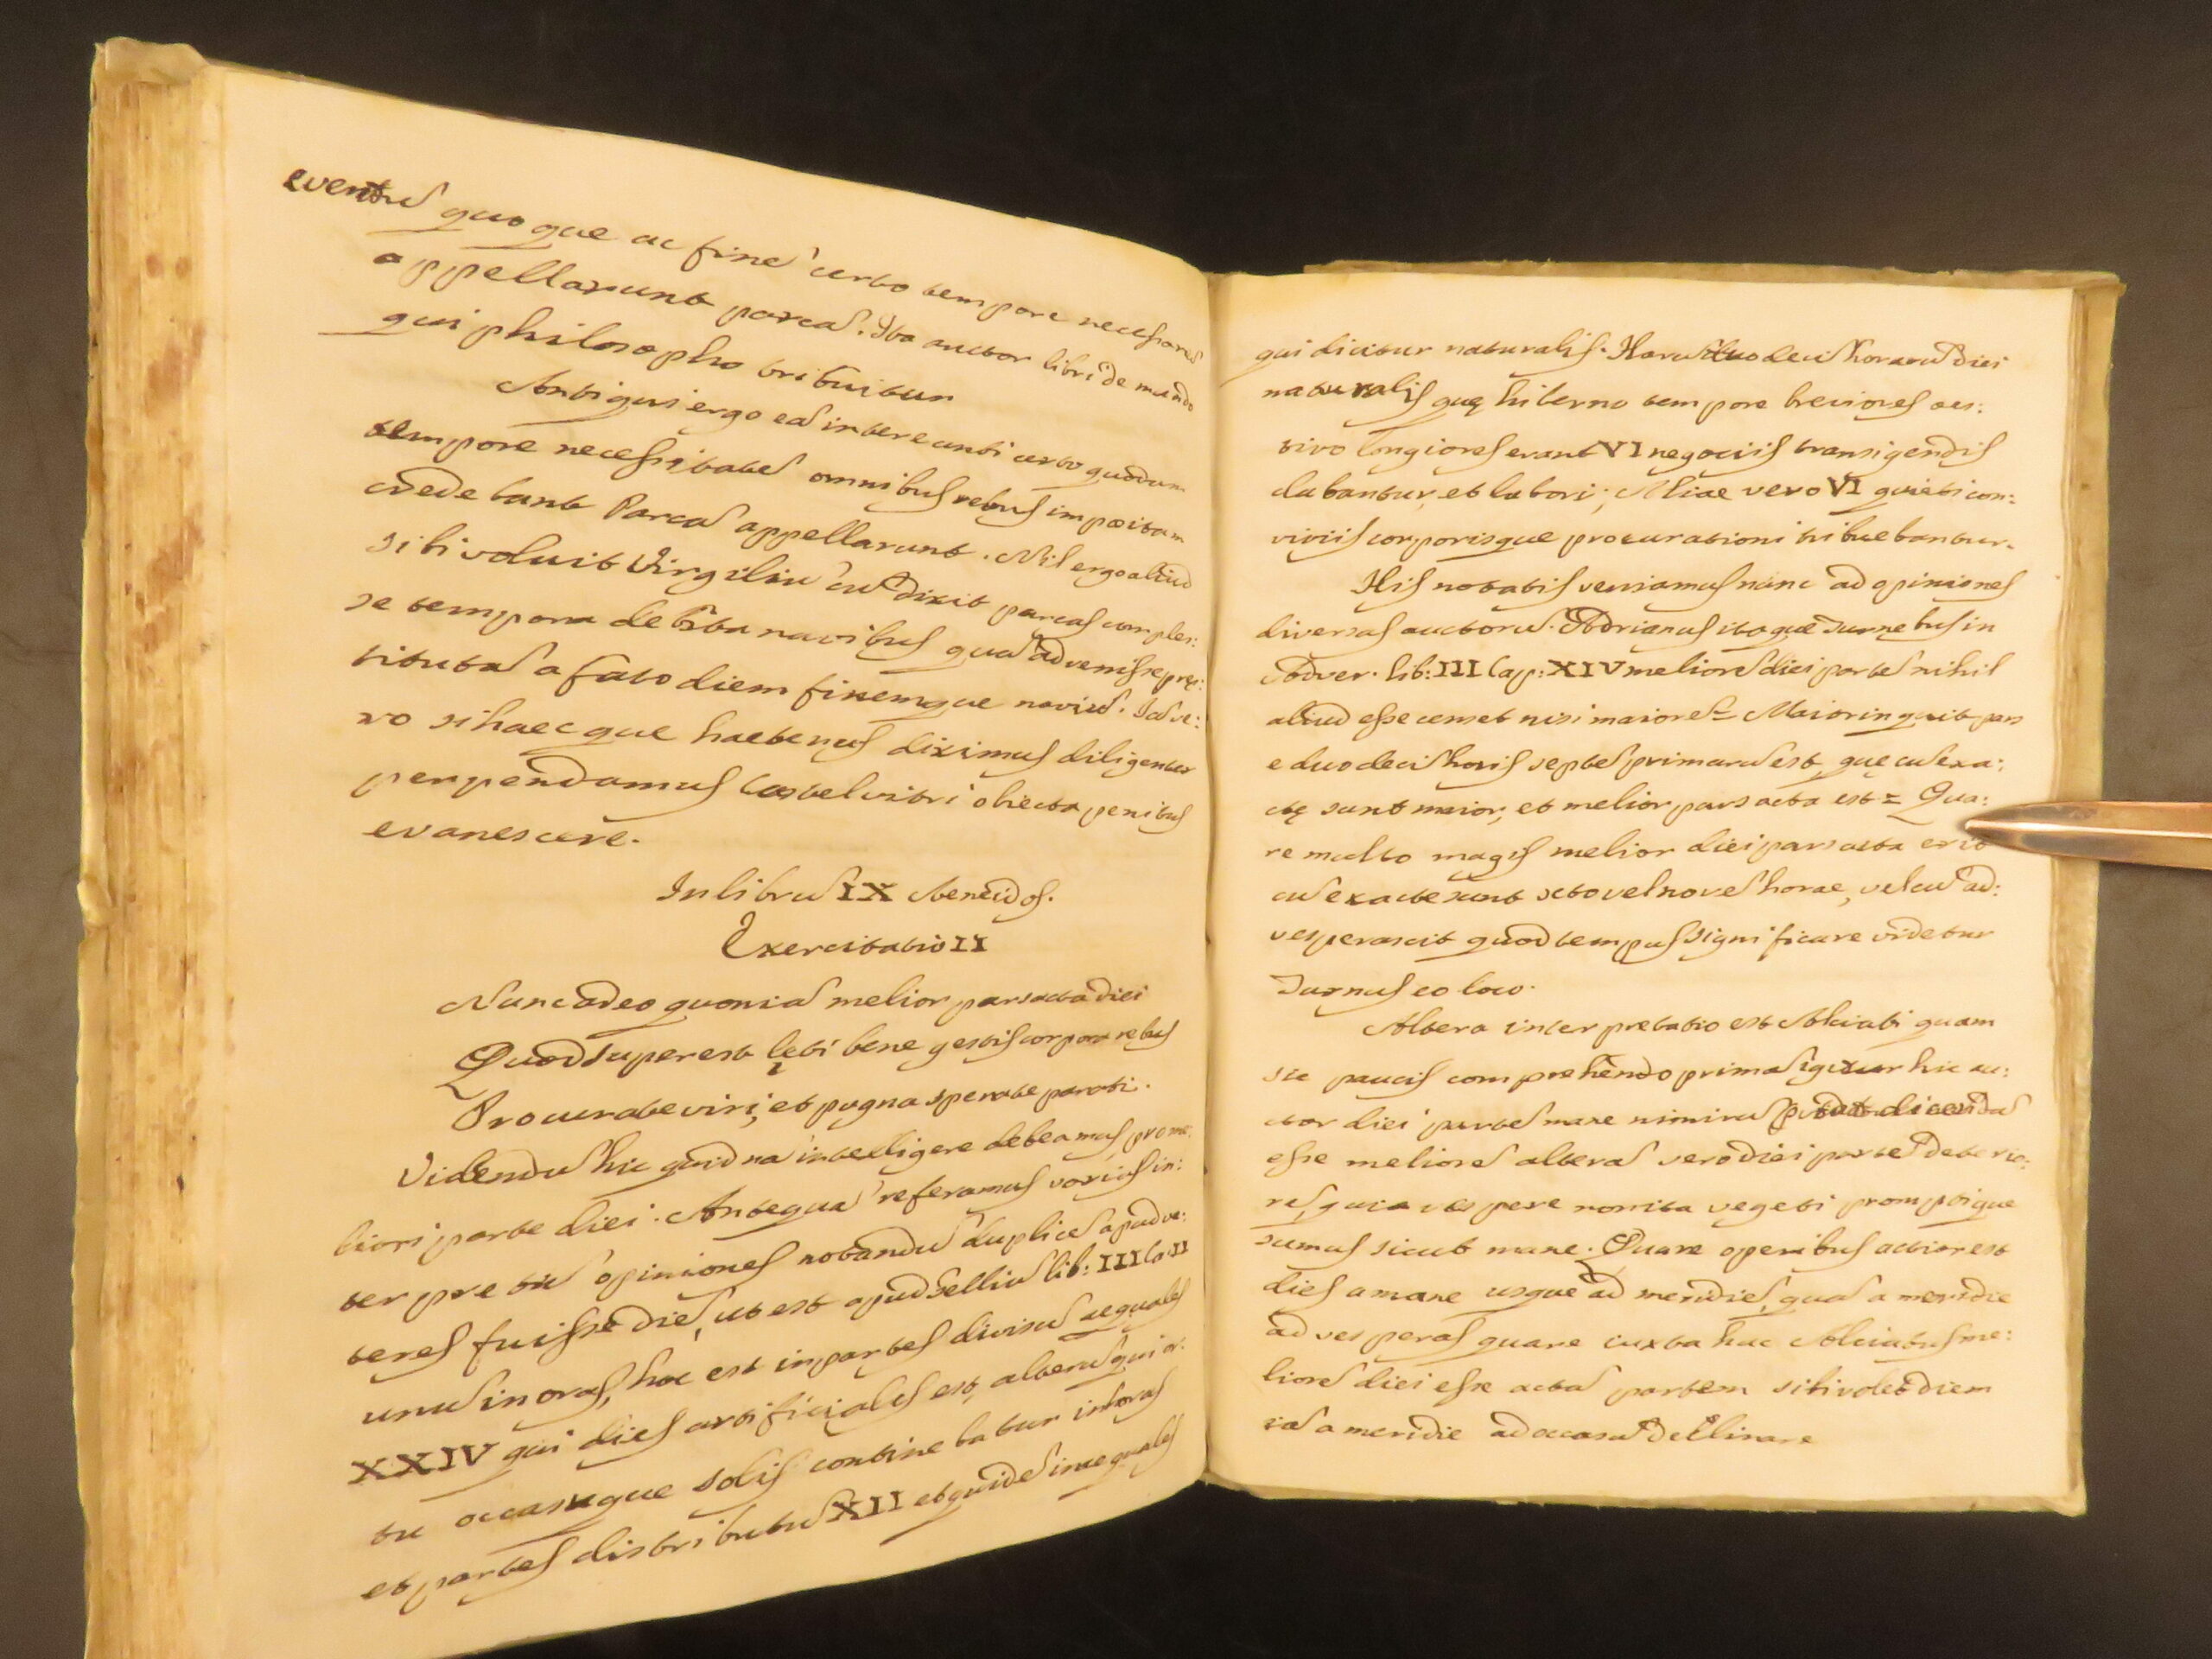 eventu᷃ quoque ac fine᷃ certo tempore necessario
appellarunt parca᷃. Ita auctor libri de mundo
qui philosopho tribuitur
Antiqui ergo ea᷃ intereunti certo quodam
tempore necessitate᷃ omnibus rebus impositam
credebant Parca᷃ appellarunt. Nil ergo aliud
sibi voluit Virgiliu᷃ cu᷃ dixit parcas comples:
se tempora debita navibus qua᷃ advenisse pręs:
tituta᷃ a fato diem finemque naviu᷃. Ia᷃ ve:
ro si haec que hactenus diximus diligenter
perpendamus Castelvitri obiecta penitus
evanescere.
In libru᷃ IX Aeneidos.
Exercitatio II
Nunc adeo quonia᷃ melior pars acta diei
Quod superest lęti bene gestis corpora rebus
Procurate viri, et pugna sperate parati.
Videndu᷃ hic quidna᷃ intelligere debeamus pro me:
liori parte diei. Antequa᷃ referamus varias in:
terpretu᷃ opiniones notandu᷃ duplice᷃ apud ve:
teres fuisse die᷃, ut est apud Gelliu᷃ lib: III Ca: II
unu᷃ in oras, hoc est in partes divisu᷃ aequales
XXIV qui dies artificialis est, alteru᷃ qui or:
tu occasuque solis continebatur in horas
et partes distributu᷃ XII et quide᷃ inaequales
qui dicitur naturalis. Haru᷃ duodeci᷃ horaru᷃ diei
naturalis quę hiberno tempore breviores aes:
tivo longiores erant VI negociis transigendis
dabantur, et labori; Aliae vero VI quieti con:
viviis corporisque procurationi tribuebantur.
His notatis veniamus nunc ad opiniones
diversas auctoru᷃. Adrianus itaque Turnebus in
Adver. lib: III Cap: XIV meliore᷃ diei parte᷃ nihil
aliud esse censet nisi maiore᷃ = Maior inquit pars
e duodeci᷃ horis septe᷃ primaru᷃ est, quę cu᷃ exa:
ctę sunt maior, et melior pars acta est = Qua:
re multo magis melior diei pars acta erit
cu᷃ exacte sunt octo vel nove᷃ horae, vel cu᷃ ad:
vesperascit quod tempus significare videtur
Turnus eo loco.
Altera interpretatio est Alciati quam
sic paucis comprehendo prima᷃ igitur hic au:
ctor diei parte᷃ mane nimiru᷃ putat dicenda᷃
esse meliore᷃ altera᷃ vero diei parte᷃ deterio:
re᷃, quia vespere non ita vegeti promptique
sumus sicut mane. Quare operibus actior est
dies a mane usque ad meridie᷃, qua᷃ a meridie
ad vesperas quare iuxta hac Alciatus me:
liore᷃ diei esse acta᷃ partem sibi volet diem
ia᷃ a meridie ad occasu᷃ declinare